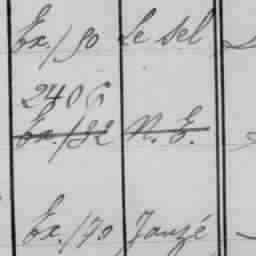 Ex./50 Le Sel
2406
Ex./82 N. E.
Ex./70 Janzé